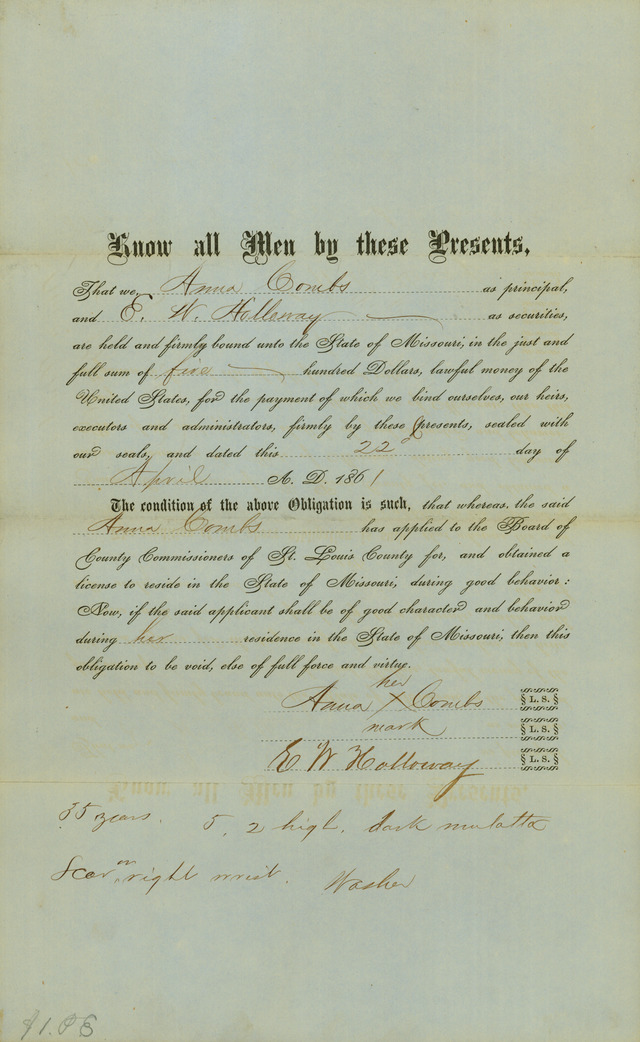 Know all Men by these Presents,
That we, Anna Combs as principal,
and E. W. Holloway as securities,
are held and firmly bound unto the State of Missouri, in the just and
full sum of five hundred Dollars, lawful money of the
United States, for the payment of which we bind ourselves, our heirs,
executors and administrators, firmly by these presents, sealed with
our seals, and dated this 22 day of
April A. D. 1861
The condition of the above Obligation is such, that whereas, the said
Anna Combs has applied to the Board of
County Commissioners of St. Louis County for, and obtained a
license to reside in the State of Missouri, during good behavior:
Now, if the said applicant shall be of good character and behavior
during her residence in the State of Missouri, then this
obligation to be void, else of full force and virtue.
her
Anna X Combs L. S.
mark L. S.
E W Holloway L. S.
35 years. 5, 2 high, dark mulatto
Scar on right wrist. Washer